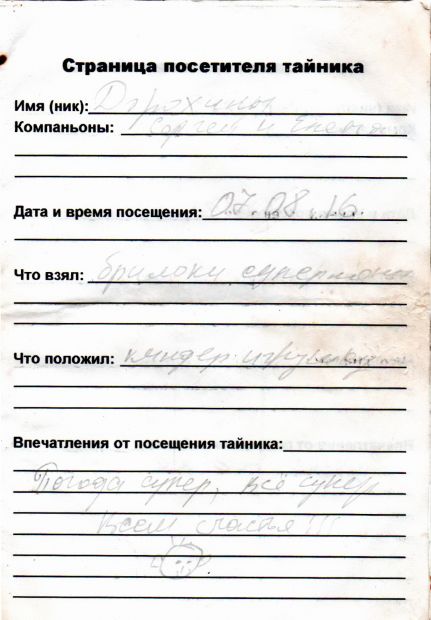 Страница посетителя тайника
Имя (ник): Дорохины
Компаньоны: Сергей и Елена
Дата и время посещения: 07.08.16.
Что взял: брилоки супермены
Что положил: киндер игрушку
Впечатления от посещения тайника:
Погода супер, всё супер
Всем счастья!!!